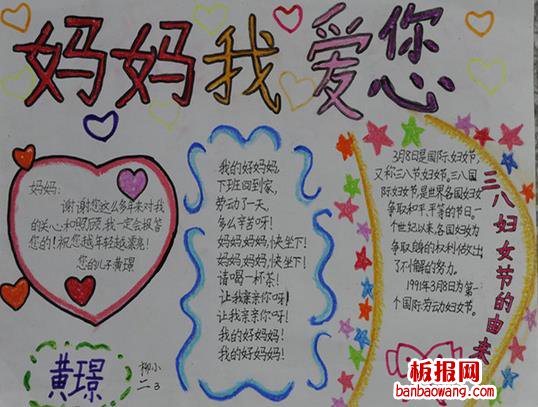 妈妈我爱您
妈妈:
谢谢您这么多年来对我
的关心和照顾,我一定会报答
您的!祝您越年轻越漂亮!
您的儿子黄璟
我的好妈妈,
下班回到家,
劳动了一天,
多么辛苦呀!
妈妈,妈妈,快坐下!
妈妈,妈妈,快坐下!
请喝一杯茶!
让我亲亲你呀!
让我亲亲你呀!
我的好妈妈!
我的好妈妈!
3月8是国际妇女节,
又称三八节妇女节,三八国
际妇女节,是世界各国妇女
争取和平、平等的节日。一
个世纪以来,各国妇女为
争取自身的权利作出
了不懈的努力。
1991年3月8日为第
个国际劳动妇女节。
三八妇女节的由来
黄璟
柳小
二3
板报网
banbaowang.com